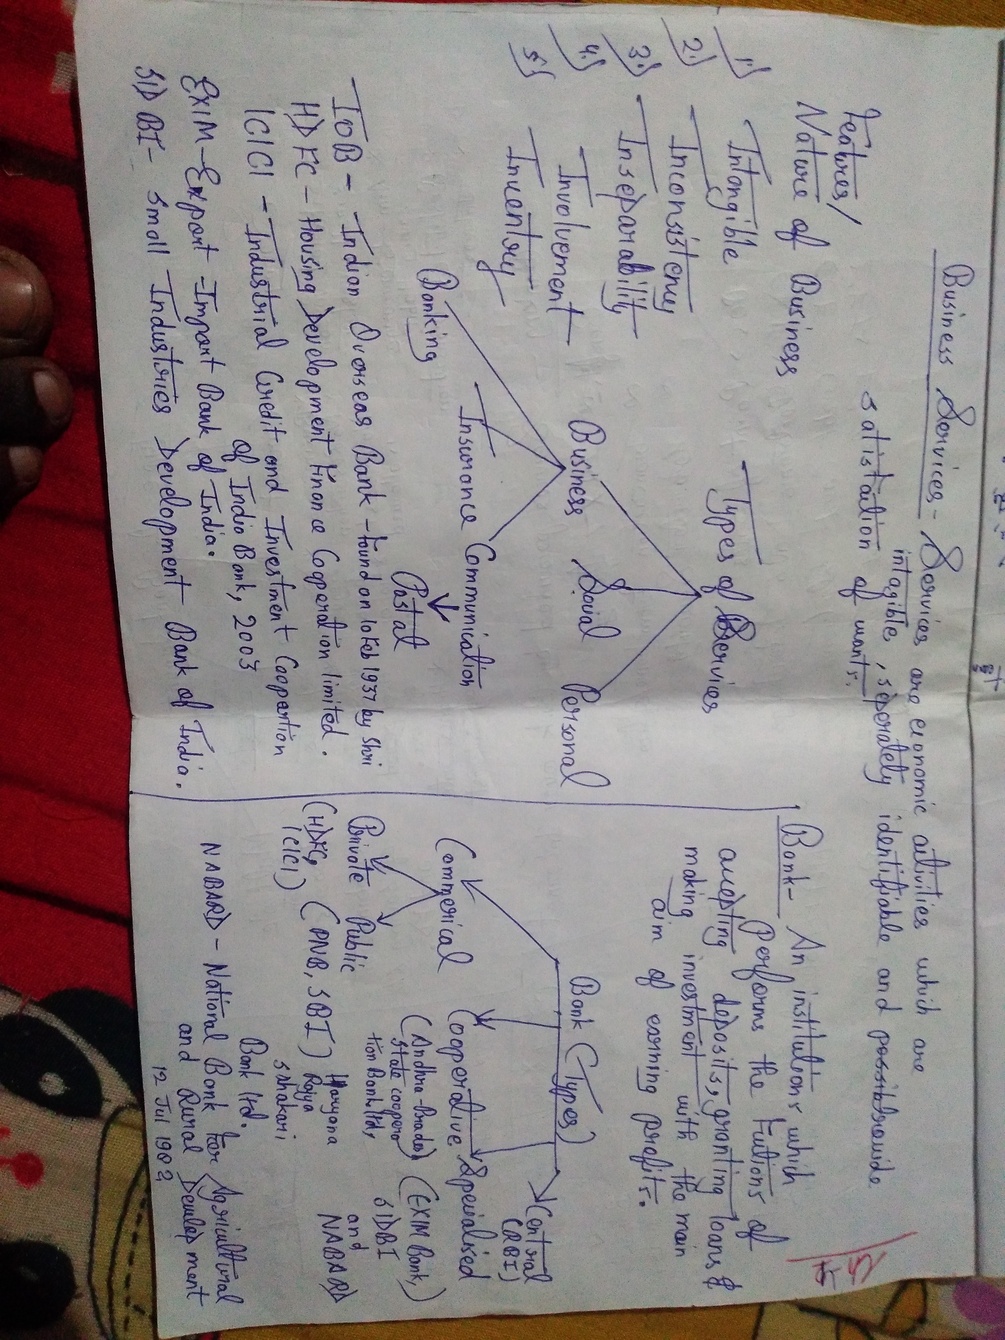 Ch-4
Business Services - Services are economic activities which are
intagible, seperately identifiable and
satisfaction of wants.
Features/
Nature of Business
1.) Intangible
2.) Inconsistency
3.) Inseparability
4.) Involvement
5.) Inventry
Types of Services
Business Social Personal
Banking Insurance Communication
Postal
IOB - Indian Overseas Bank - found on 10 Feb 1937 by Shri
HDFC - Housing Development Finance Coperation limited.
ICICI - Industrial Credit and Investment Coopertion
of India Bank, 2003
EXIM - Export - Import Bank of India.
SIDBI - Small Industries Development Bank of India.
Bank - An institutions which
Performs the Fuctions of
accepting deposits, granting loans &
making investment with the main
aim of earning profits.
Bank (Types)
Commerical Cooperative Specialised Central
(RBI)
Private Public
(HDFC, ICICI) (PNB, SBI)
(Andhra-Pradesh
State coopera
tion Bank ltd,
Haryana
Rajya
Sahakari
Bank ltd.
(EXIM Bank,)
SIDBI
and
NABARD
NABARD - National Bank for Agricultural
and Rural Devlopment
12 Jul 1982